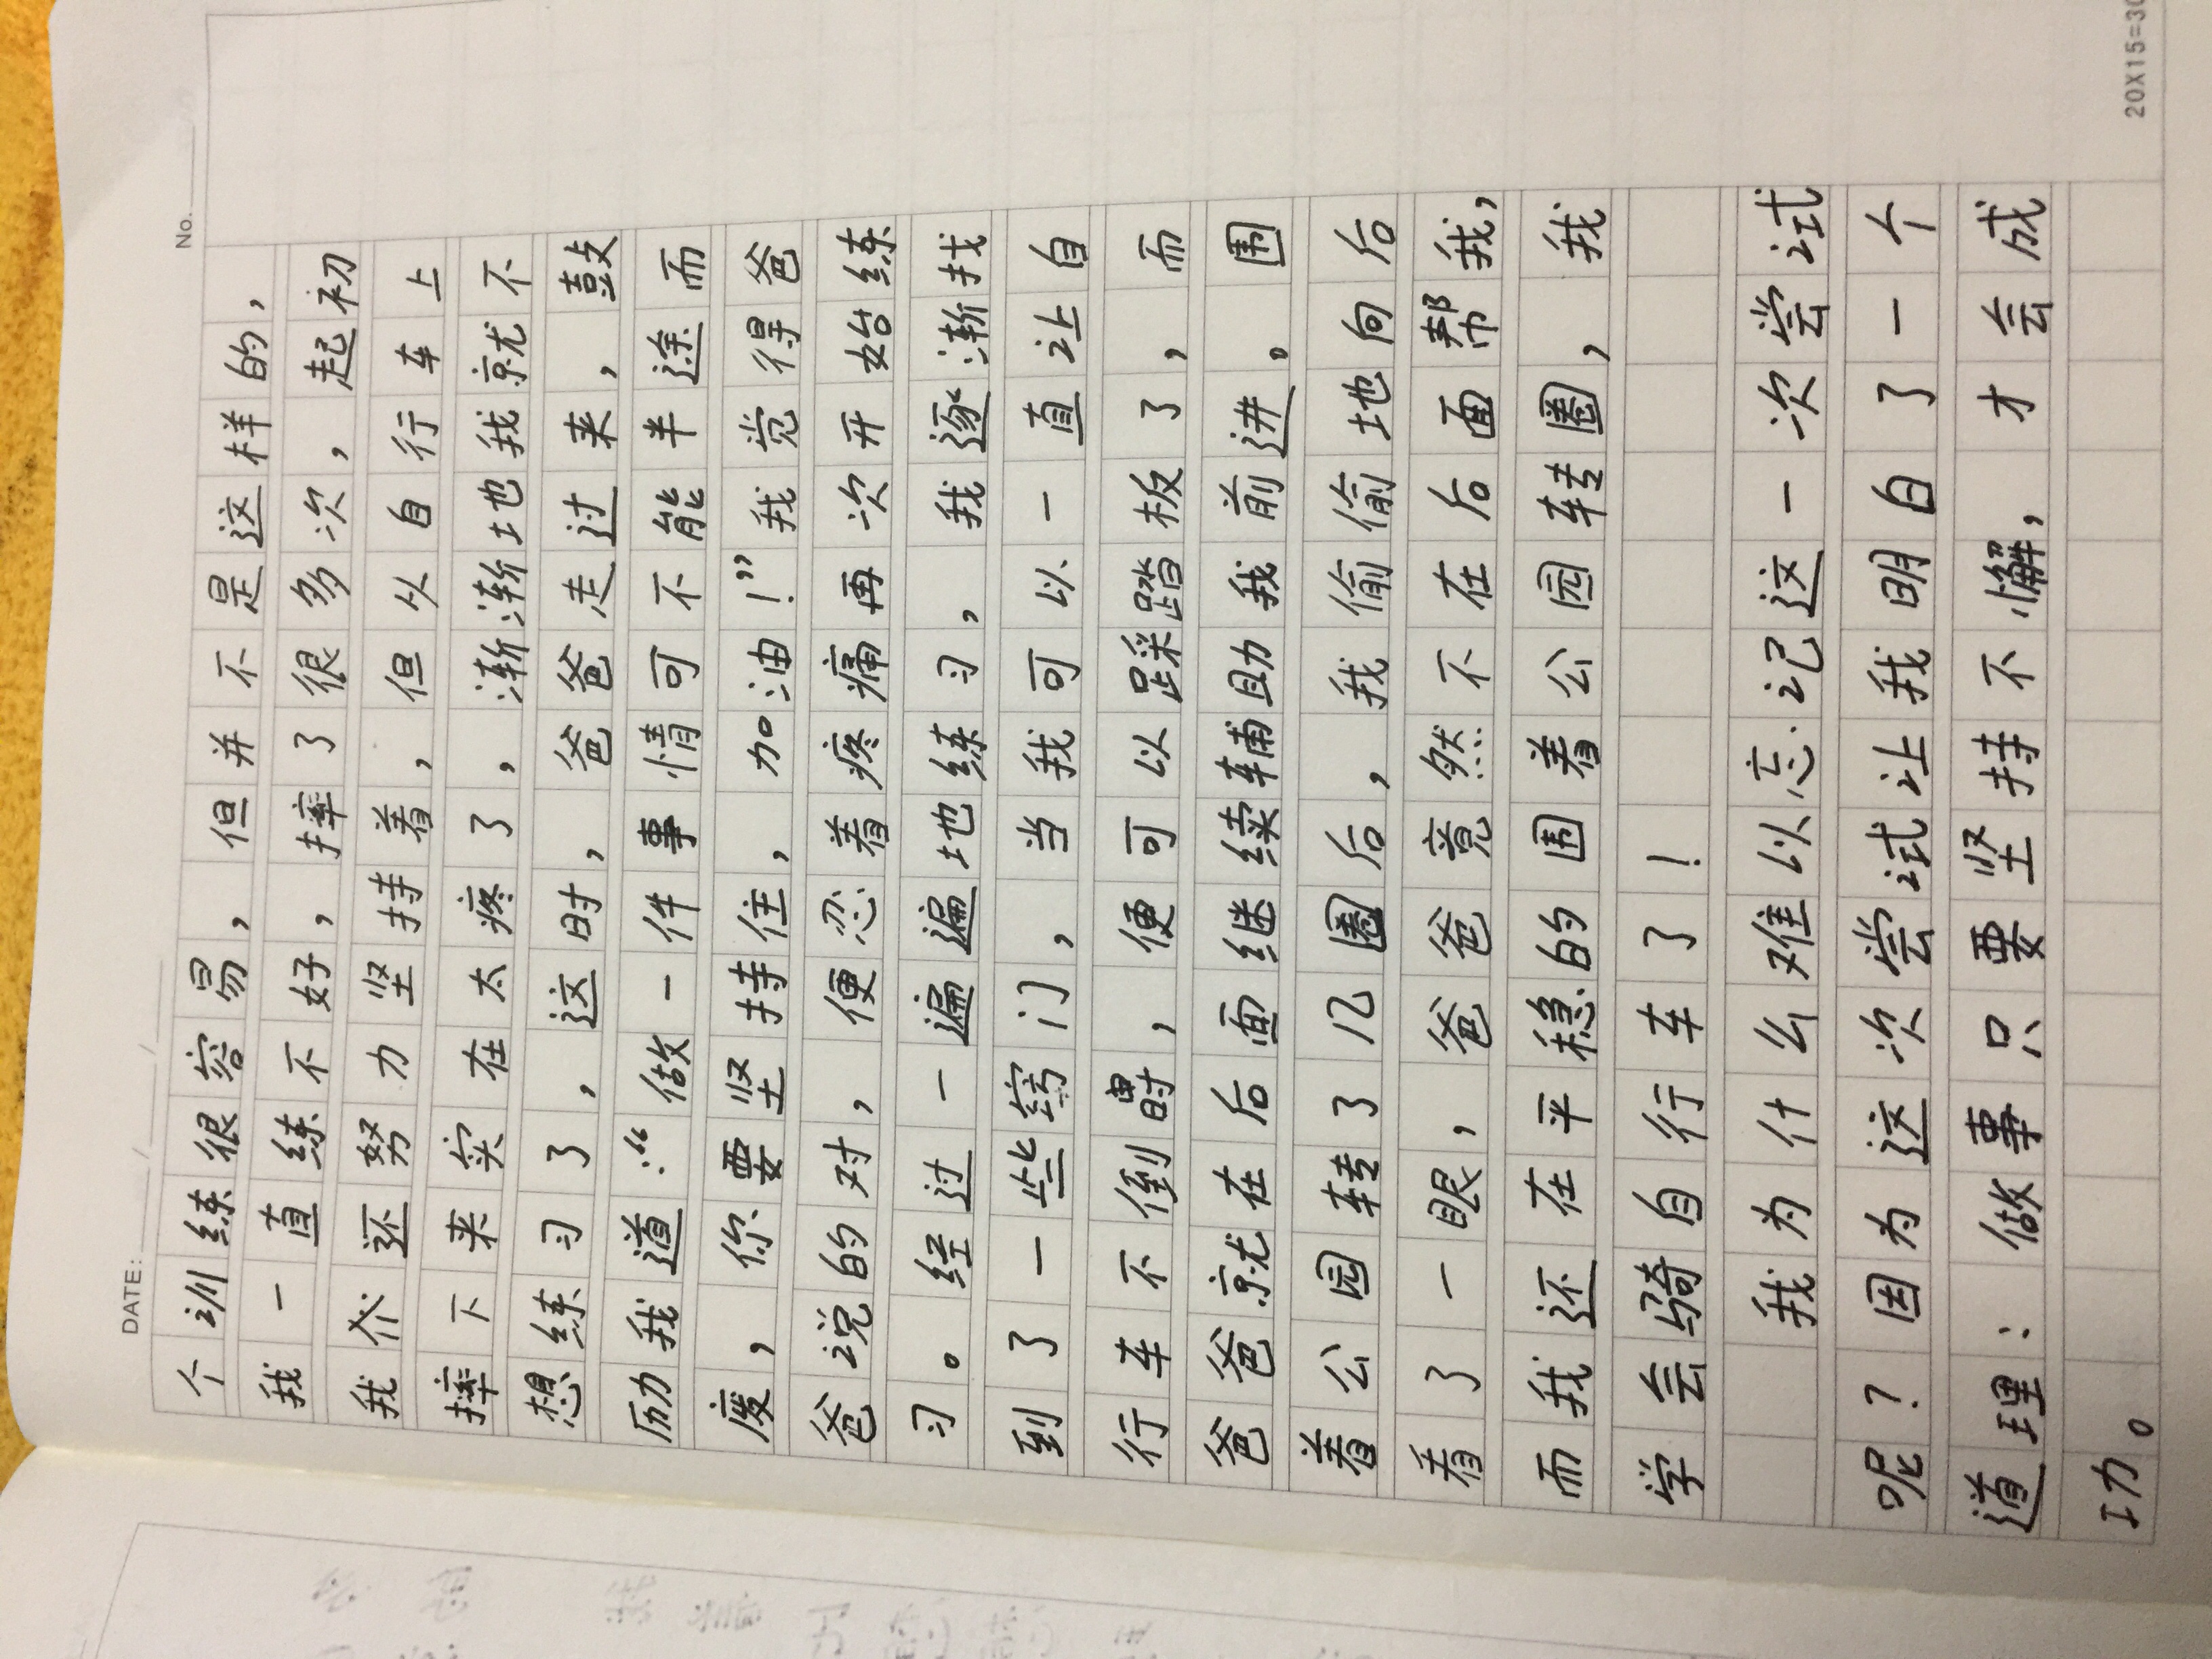 No.
DATE: / /
个训练很容易，但并不是这样的，
我一直练不好，摔了很多次，起初
我还努力坚持着，但从自行车上
摔下来实在太疼了，渐渐地我就不
想练习了，这时，爸爸走过来，鼓
历力我道：“做一件事情可不能半途而
废，你要坚持住，加油！”我觉得爸
爸说的对，便忍着疼痛再次开始练
习。经过一遍遍地练习，我逐渐找
到了一些窍门，当我可以一直让自
行车不倒时，便可以踩踏板了，而
爸爸就在后面继续辅助我前进。围
着公园转了几圈后，我偷偷地向后
看了一眼，爸爸竟然不在后面帮我，
而我还在平稳的围着公园转圈，我
学会骑自行车了！
我为什么难以忘记这一次尝试
呢？因为这次尝试让我明白了一个
道理：做事只要坚持不懈，才会成
功。